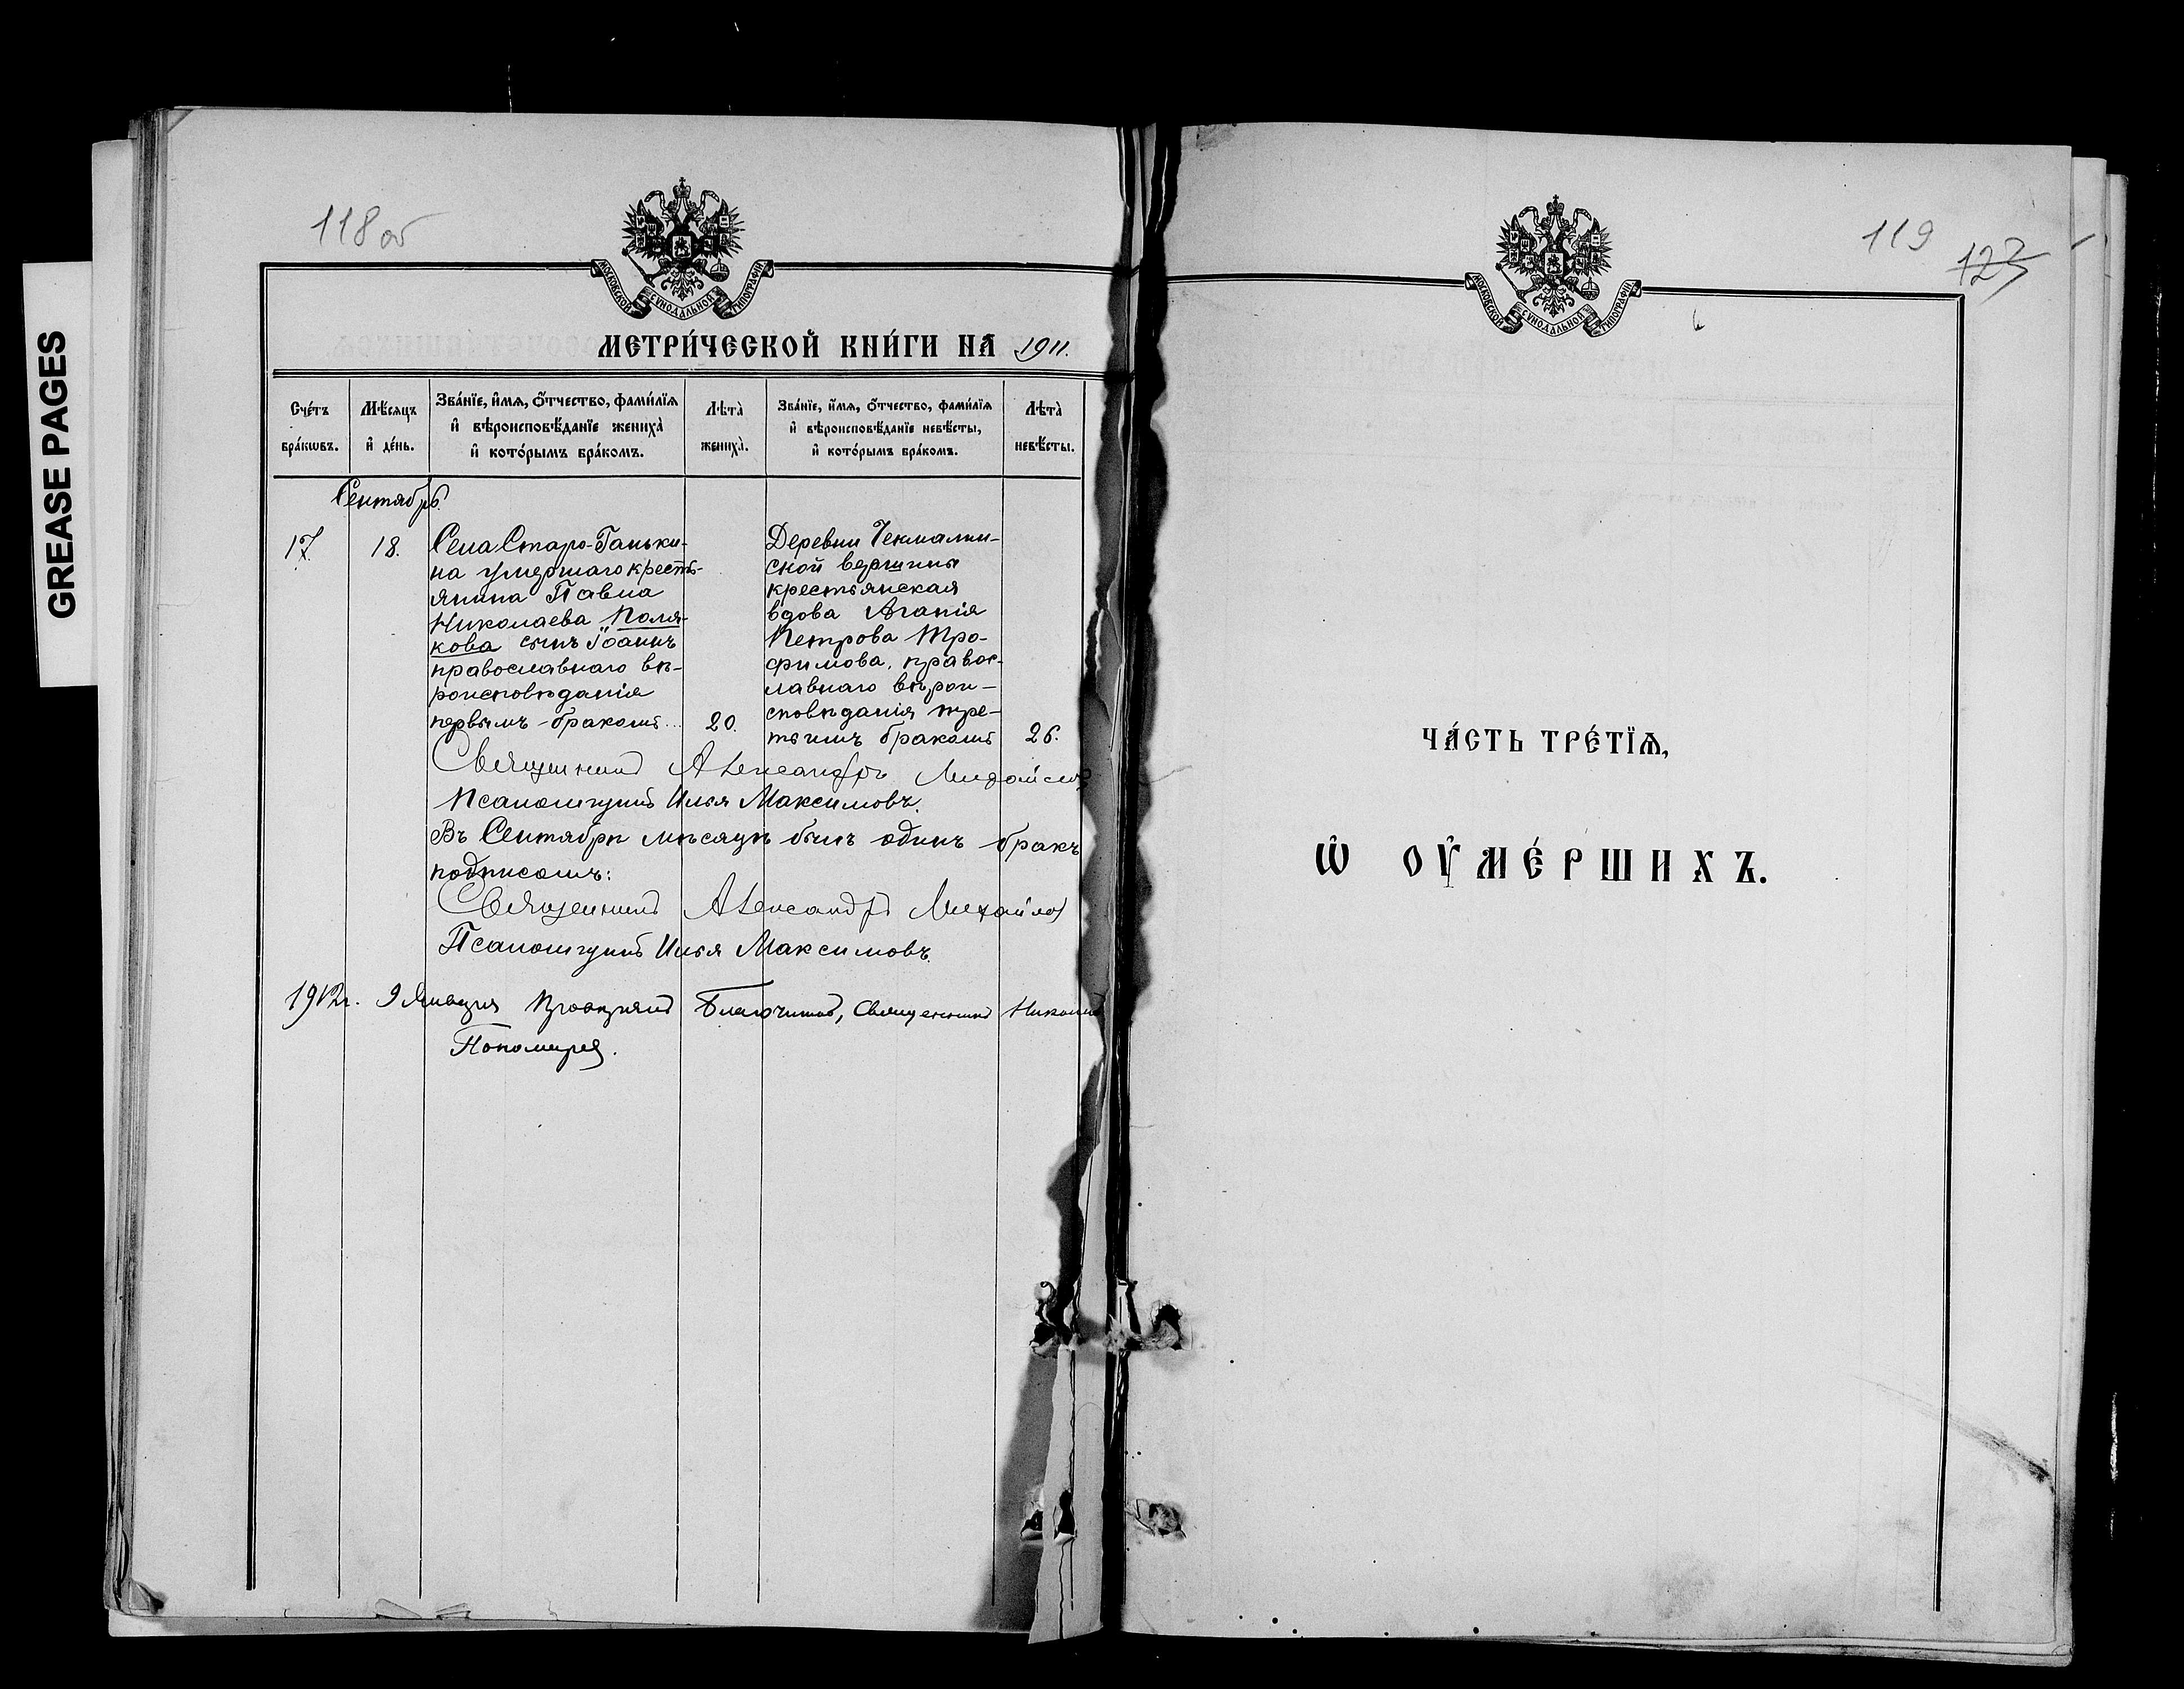 GREASE PAGES
118 об
МОСКОВСКОЙ СѴНОДАЛЬНОЙ ТИПОГРАФІИ
МЕТРИ́ЧЕСКОЙ КНИ́ГИ НА̀ 1911.
Сче́тъ бра́кѡвъ.
Мѣ́сяцъ и҆ де́нь.
Зва́нїе, и҆́мѧ, ѻ҆́тчество, фами́лїѧ
и҆ вѣроисповѣ́данїе жениха̀
и҆ кото́рымъ бра́комъ.
Лѣта̀ жениха̀.
Зва́нїе, и҆́мѧ, ѻ҆́тчество, фами́лїѧ
и҆ вѣроисповѣ́данїе невѣ́сты,
и҆ кото́рымъ бра́комъ.
Лѣта̀ невѣ́сты.
Сентябрь.
17. 18.
Села Старо-Ганьки-
на умершаго кресть-
янина Павла
Николаева Поля-
кова сынъ Іоаннъ
православнаго вѣ-
роисповѣданія
первымъ бракомъ...
20.
Деревни Чекмалин-
ской вершины
крестьянская
вдова Агапія
Петрова Тро-
фимова, правос-
лавнаго вѣрои-
сповѣданія тре-
тьимъ бракомъ
26.
Священникъ Александръ Михайловъ
Псаломщикъ Илья Максимовъ.
Въ Сентябрѣ мѣсяцѣ былъ одинъ бракъ
подписомъ:
Священникъ Александръ Михайлов
Псаломщикъ Илья Максимовъ.
1912 г. 9 Января Благочинный, Священникъ Николай
119
123
МОСКОВСКОЙ СѴНОДАЛЬНОЙ ТИПОГРАФІИ
ЧА́СТЬ ТРЕ́ТЇѦ,
Ѡ҆ ОУ҆МЕ́РШИХЪ.